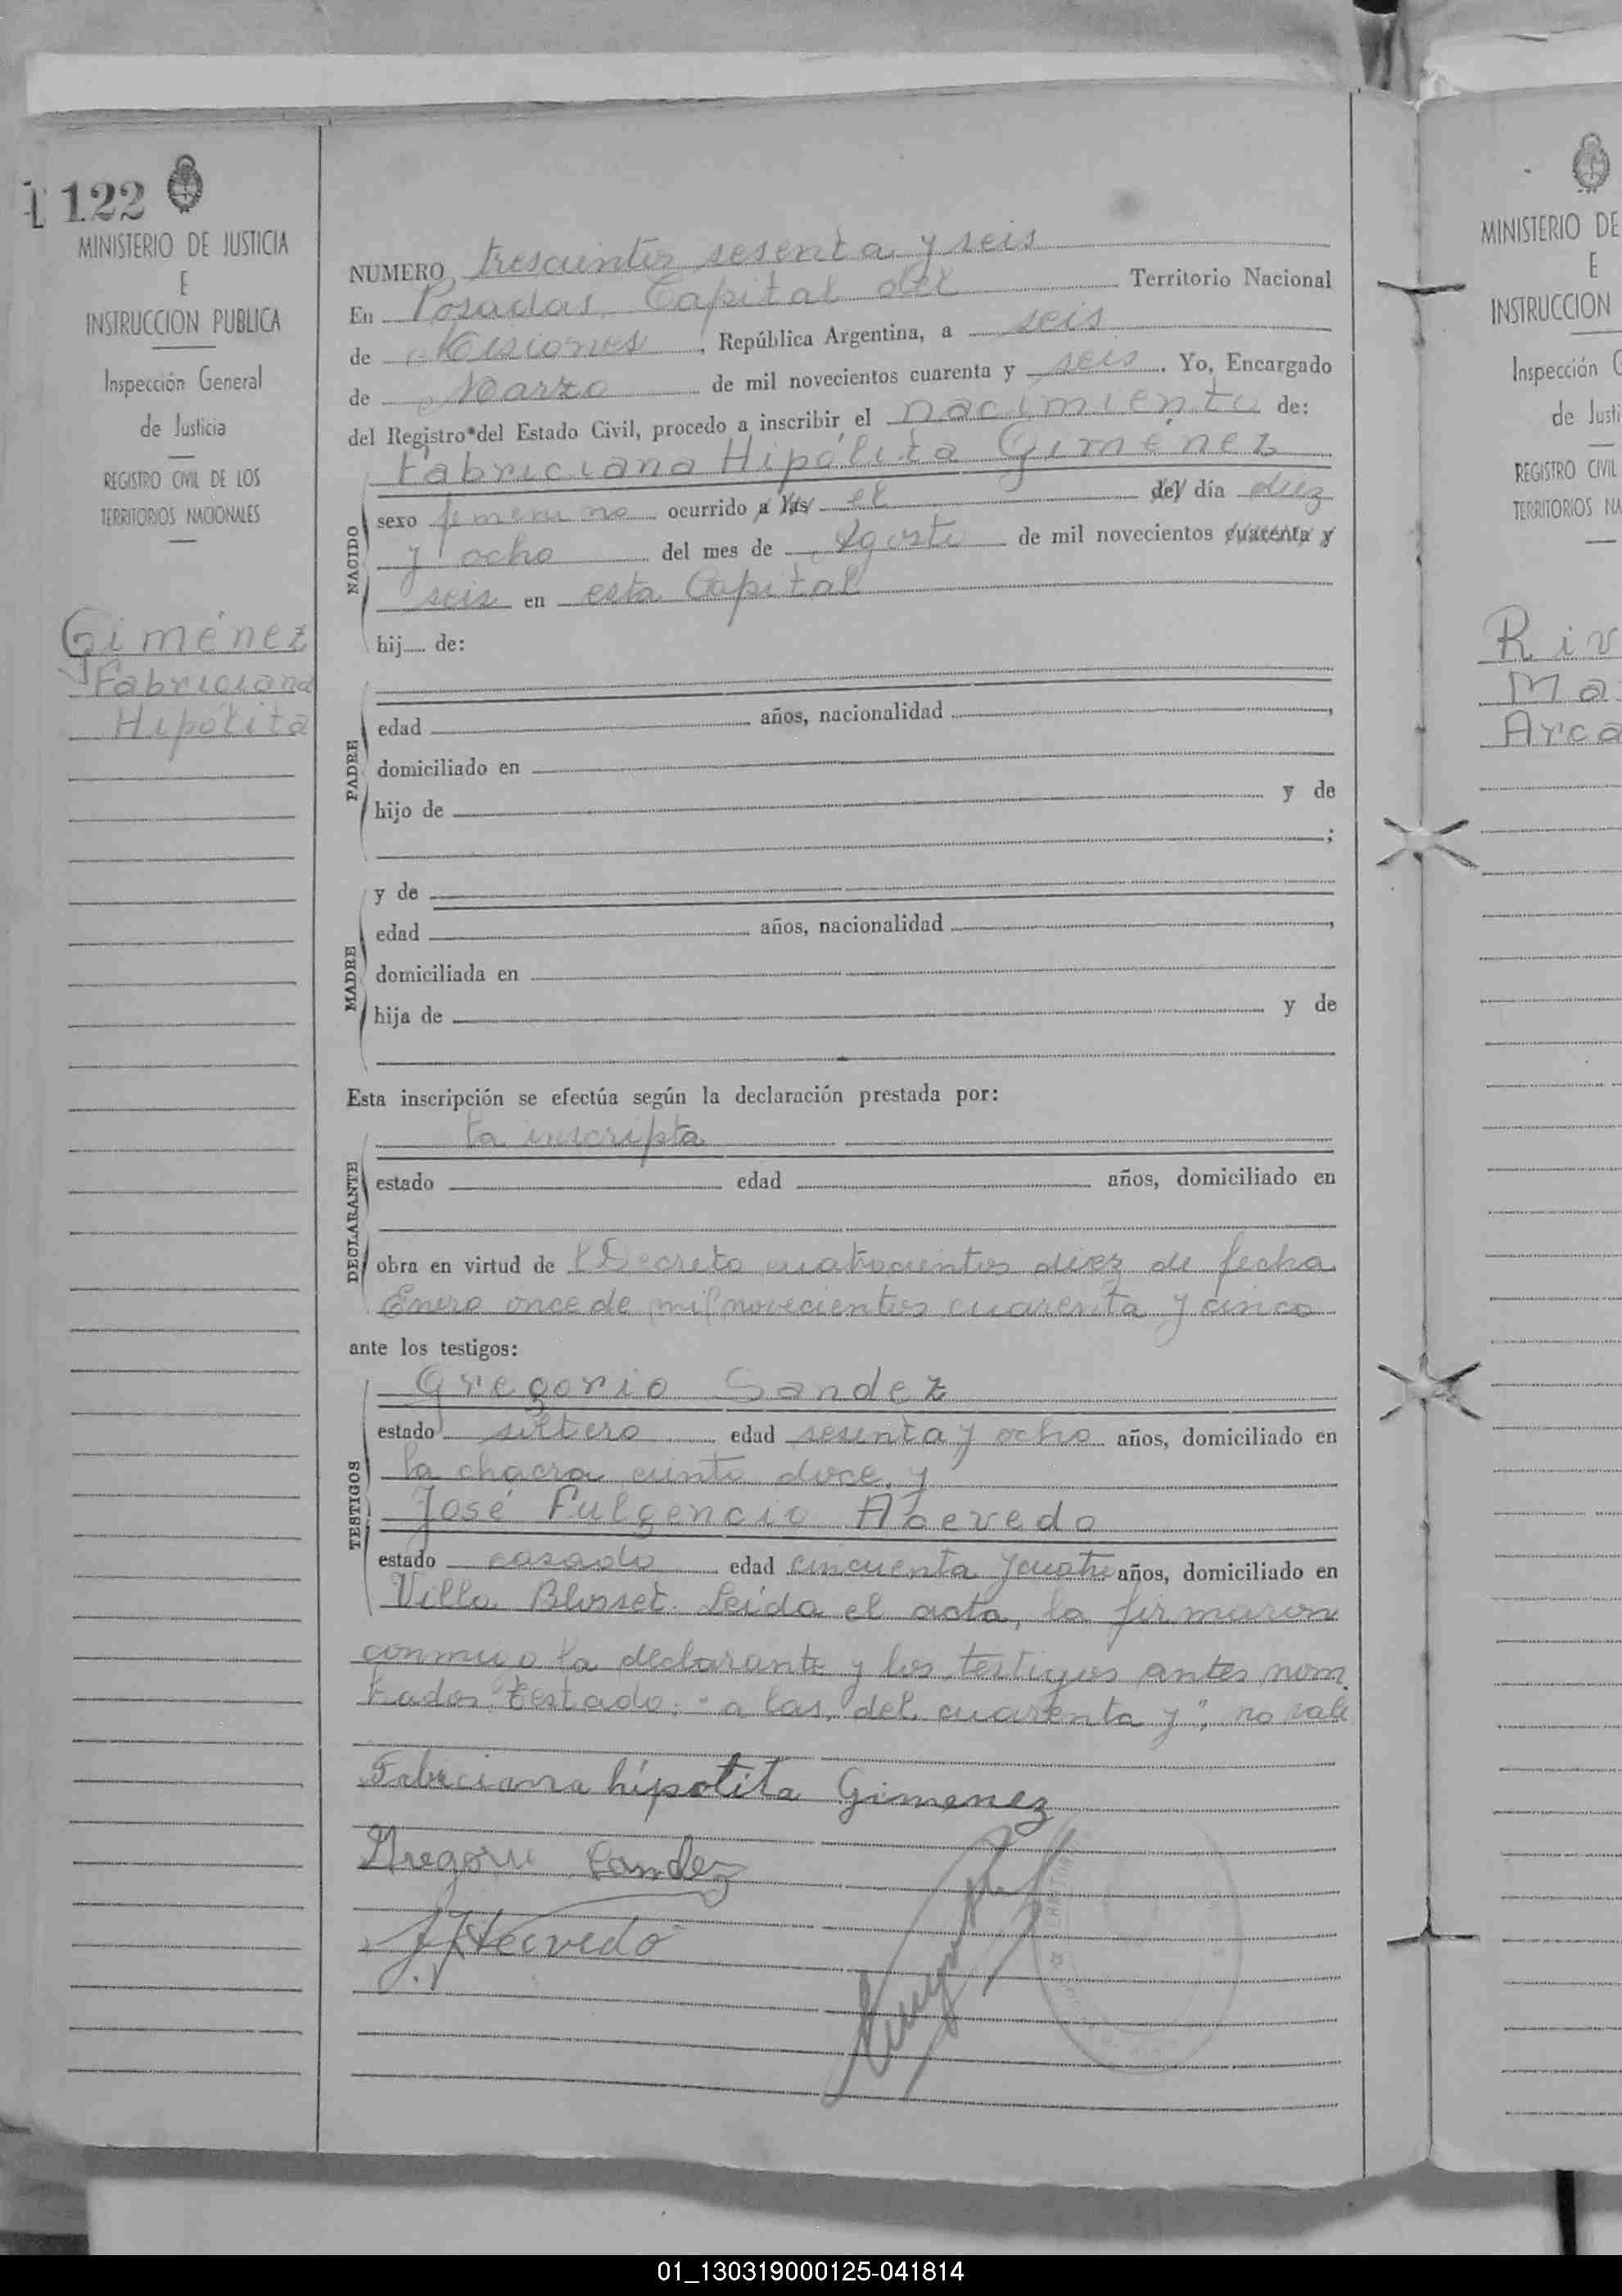 1122
MINISTERIO DE JUSTICIA
E
INSTRUCCION PUBLICA
Inspección General
de Justicia
REGISTRO CIVIL DE LOS
TERRITORIOS NACIONALES
Giménez
Fabriciana
Hipólita
NUMERO trescientos sesenta y seis
En Posadas, Capital del Territorio Nacional
de Misiones, República Argentina, a seis
de Marzo de mil novecientos cuarenta y seis. Yo, Encargado
del Registro del Estado Civil, procedo a inscribir el nacimiento de:
Fabriciana Hipólita Giménez
NACIDO
sexo femenino ocurrido a las el del día diez
y ocho del mes de Agosto de mil novecientos cuarenta y
seis en esta Capital
hij.... de:
PADRE
edad años, nacionalidad ,
domiciliado en
hijo de y de
;
MADRE
y de
edad años, nacionalidad ,
domiciliada en
hija de y de
Esta inscripción se efectúa según la declaración prestada por:
DECLARANTE
la inscripta
estado edad años, domiciliado en
obra en virtud de Decreto cuatrocientos diez de fecha
Enero once de mil novecientos cuarenta y cinco
ante los testigos:
TESTIGOS
Gregorio Sandez
estado soltero edad sesenta y ocho años, domiciliado en
la chacra ciento doce, y
José Fulgencio Acevedo
estado casado edad cincuenta y cuatro años, domiciliado en
Villa Blosset. Leída el acta, la firmaron
conmigo la declarante y los testigos antes nom
brados. Testado: "a las, del, cuarenta y", no vale
Fabriciana hipolita Gimenez
Gregorio Sandez
J. F. Acevedo
MINISTERIO DE
E
INSTRUCCION
Inspección G
de Justi
REGISTRO CIVIL
TERRITORIOS NA
Riv
Ma
Arca
01_130319000125-041814